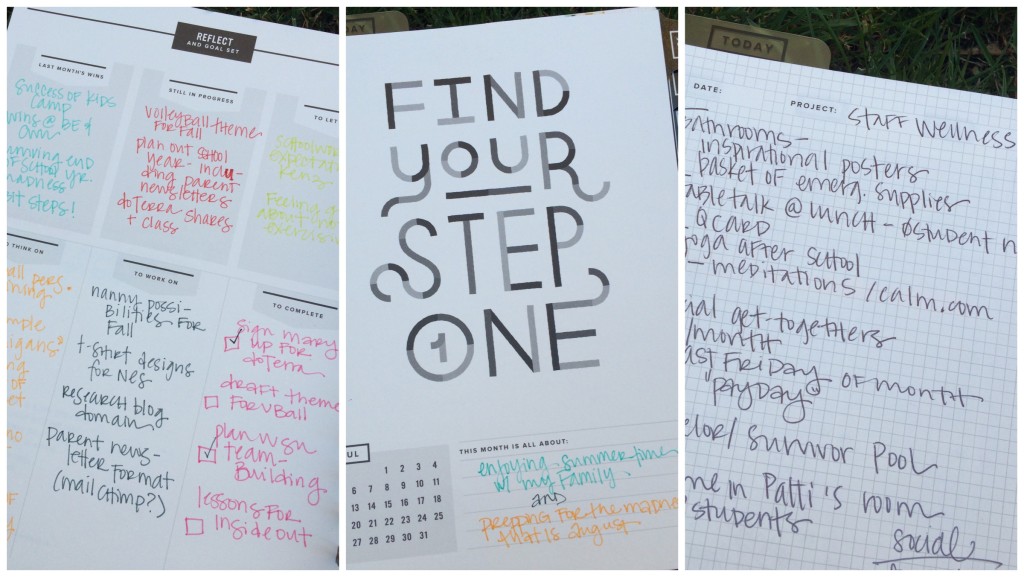 REFLECT
AND GOAL SET
LAST MONTH'S WINS
success of kids
camp
wins @ BE &
own
end
of school yr.
madness
steps!
STILL IN PROGRESS
volleyball theme
for fall
plan out school
year - inclu-
ding parent
newsletters
doTerra shares
+ class
TO LET
Feeling
about
THINK ON
pers.
of
TO WORK ON
nanny possi-
bilities for
fall
t-shirt designs
for Nes
research blog
domain
parent news-
letter format
(mailchimp?)
TO COMPLETE
sign mary
up for
doTerra
draft theme
for vball
plan wsn
team-
building
lessons for
inside out
FIND
YOUR
STEP
1 ONE
UL
1 2 3 4
6 7 8 9 10 11
13 14 15 16 17 18
20 21 22 23 24 25
27 28 29 30 31
THIS MONTH IS ALL ABOUT:
enjoying summertime
w/ my family.
and
prepping for the madness
that is august
TODAY
DATE:
PROJECT: Staff Wellness
athrooms -
inspirational posters
basket of emerg. supplies
abletalk @ lunch - Østudent n
Q card
yoga after school
- meditations / calm.com
get-togethers
/month
ast Friday of month
"payday"
elor / survivor pool
me in Patti's room
students
social